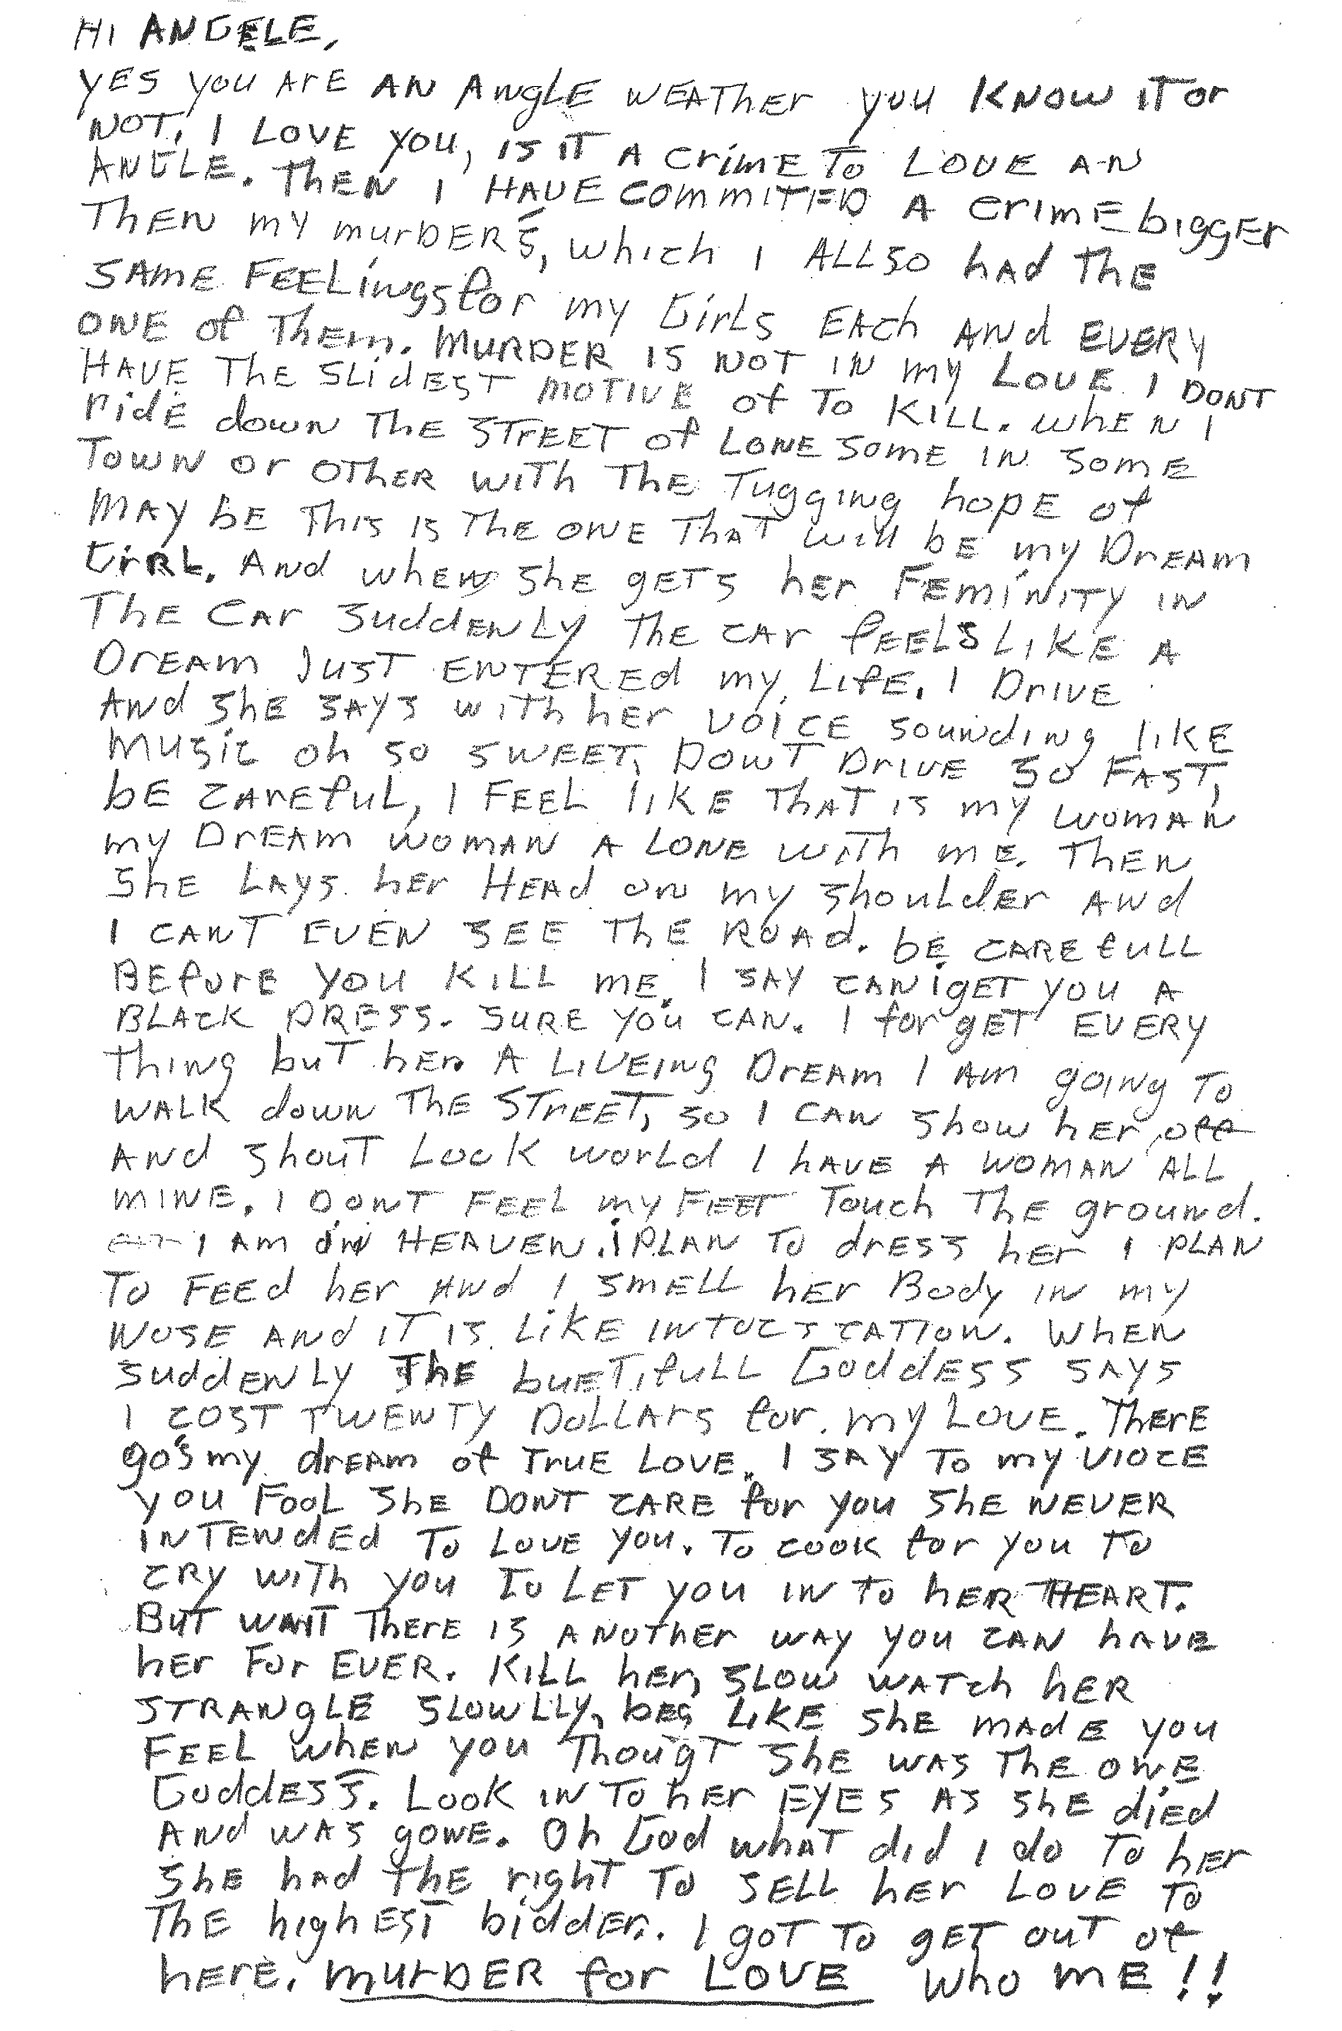 HI ANGELE,
YES YOU ArE AN ANgLE WEATher you KNOW iT or
NOT. I LOVE YOU, IS IT A CrimE To LOVE AN
ANGLE. ThEN I HAVE COMMITTED A CrimE biggEr
ThEN my murDERS, which I ALLSO hAd ThE
SAmE FEELings for my GirLS EAch ANd EVERy
ONE of ThEm. MURDER IS NOT IN my LOVE I DONT
HAVE ThE SLidEST MOTIVE of To KILL. whEN I
ridE down ThE STrEET of LONESOME IN SOmE
TOWN or OThER wiTh ThE Tugging hopE of
MAY bE This is ThE ONE ThAT will bE my DrEAm
GirRL. ANd whEN ShE gETS hEr FEMiNiTY IN
ThE CAr SuddENLy ThE CAr fEELS LIKE A
DrEAm JuST ENTERED my LifE. I DrivE
ANd ShE SAYS wiTh hEr VOICE SOUNdiNg likE
MUSIC oh so SWEET, DONT DrIVE SO FAST,
bE CArEfuL, I FEEL likE ThAT is my WOMAN
my DrEAm WOMAN A LONE wiTh mE. ThEN
ShE LAYS hEr HEAd on my ShouLdEr ANd
I CANT EVEN SEE ThE ROAD. bE CARE fULL
BEforE you KILL mE. I SAY CAN i gET you A
BLAcK DRESS. SURE YOU CAN. I for gET EVERY
Thing buT hEr. A LiVEing DrEAm I Am goiNg To
WALK down ThE STrEET, SO I CAN Show hEr off
ANd ShouT Look world I hAVE A WOMAN ALL
MINE. I DONT FEEL my FEET Touch ThE ground.
I Am iN HEAVEN. i PLAN To drESS hEr I PLAN
To FEEd hEr ANd I SmELL hEr Body IN my
NOSE ANd iT is LikE INTOCSICATION. WhEN
SuddENLy ThE buETifuLL GoddESS SAYS
I COST TWENTY DoLLArs for my LOVE. ThErE
go's my drEAm of TruE LOVE. I SAY To my VIOCE
you FOOL ShE DONT CARE for you ShE NEVER
INTENdEd To LOVE you. To COOK for you To
CRy wiTh you To LET you IN To hER HEART.
BuT WAIT ThErE IS ANOThEr WAY you CAN hAVE
hEr For EVER. KILL hEr, SLOW WATch hER
STrANgLE SLOWLLY, bEg LIKE ShE mAdE you
FEEL whEN you ThougT ShE WAS ThE ONE
GoddESS. LOOK INTO hEr EYES AS ShE diEd
ANd WAS goNE. Oh God whAT did I do To hEr
ShE hAd ThE righT To SELL hEr LOVE To
ThE highEST biddEr. I goT To gET ouT of
hErE. murDER for LOVE who mE!!